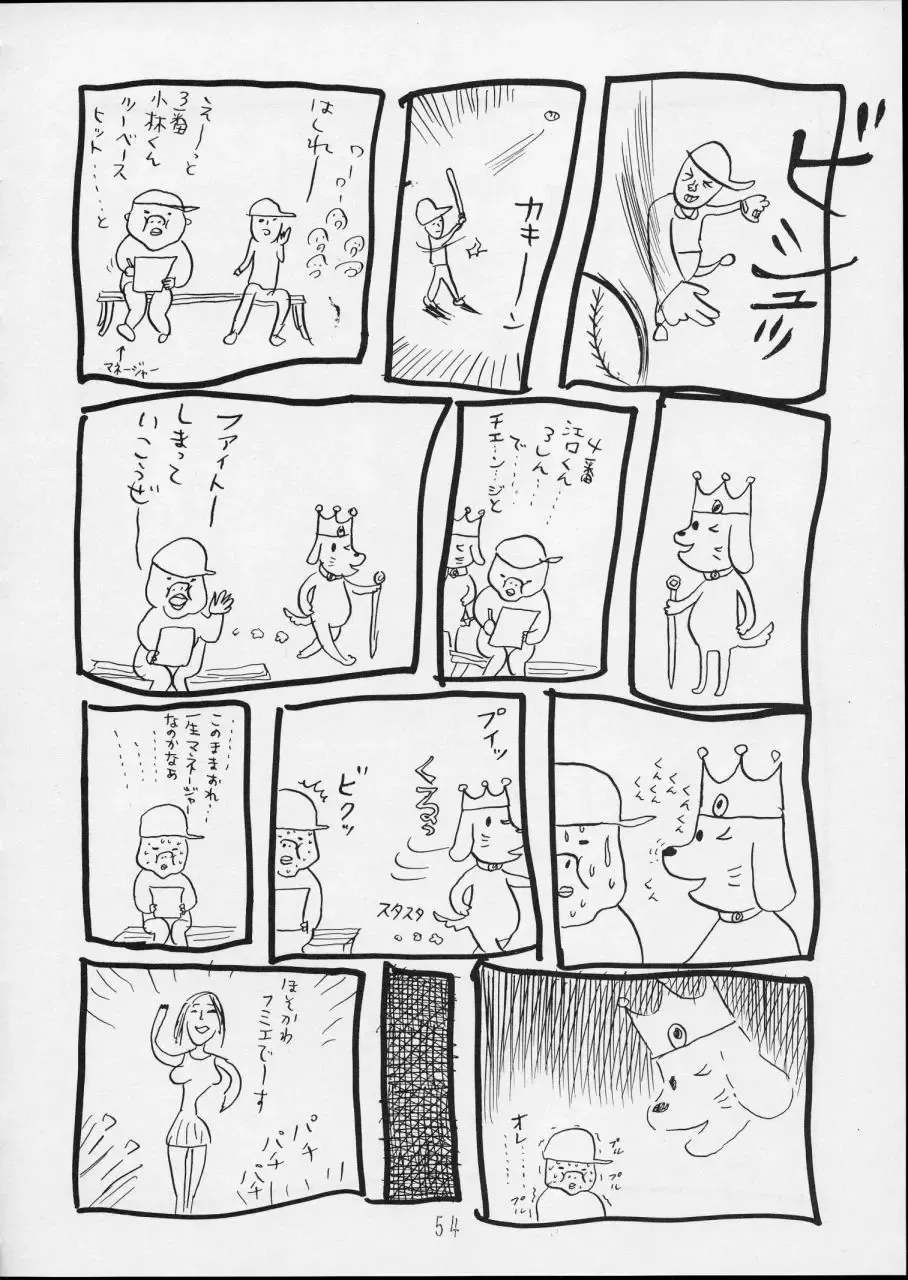 ビュッ
カキーン
ワーワー
はしれー
えーっと
3番
小林くん
ツーベース
ヒット……と
↑
マネージャー
4番
江口くん
3しん…
で……
チェ…ン…ジと
ファイトー
しまって
いこうぜー
くんくん
くんくん
くんくん
くん
プイッ
くるっ
ビクッ
スタスタ
このままおれ…
一生マネージャー
なのかなあ
オレ……
プル
プル
プル
ほそかわ
フミエでーす
パチ
パチ
パチ
54